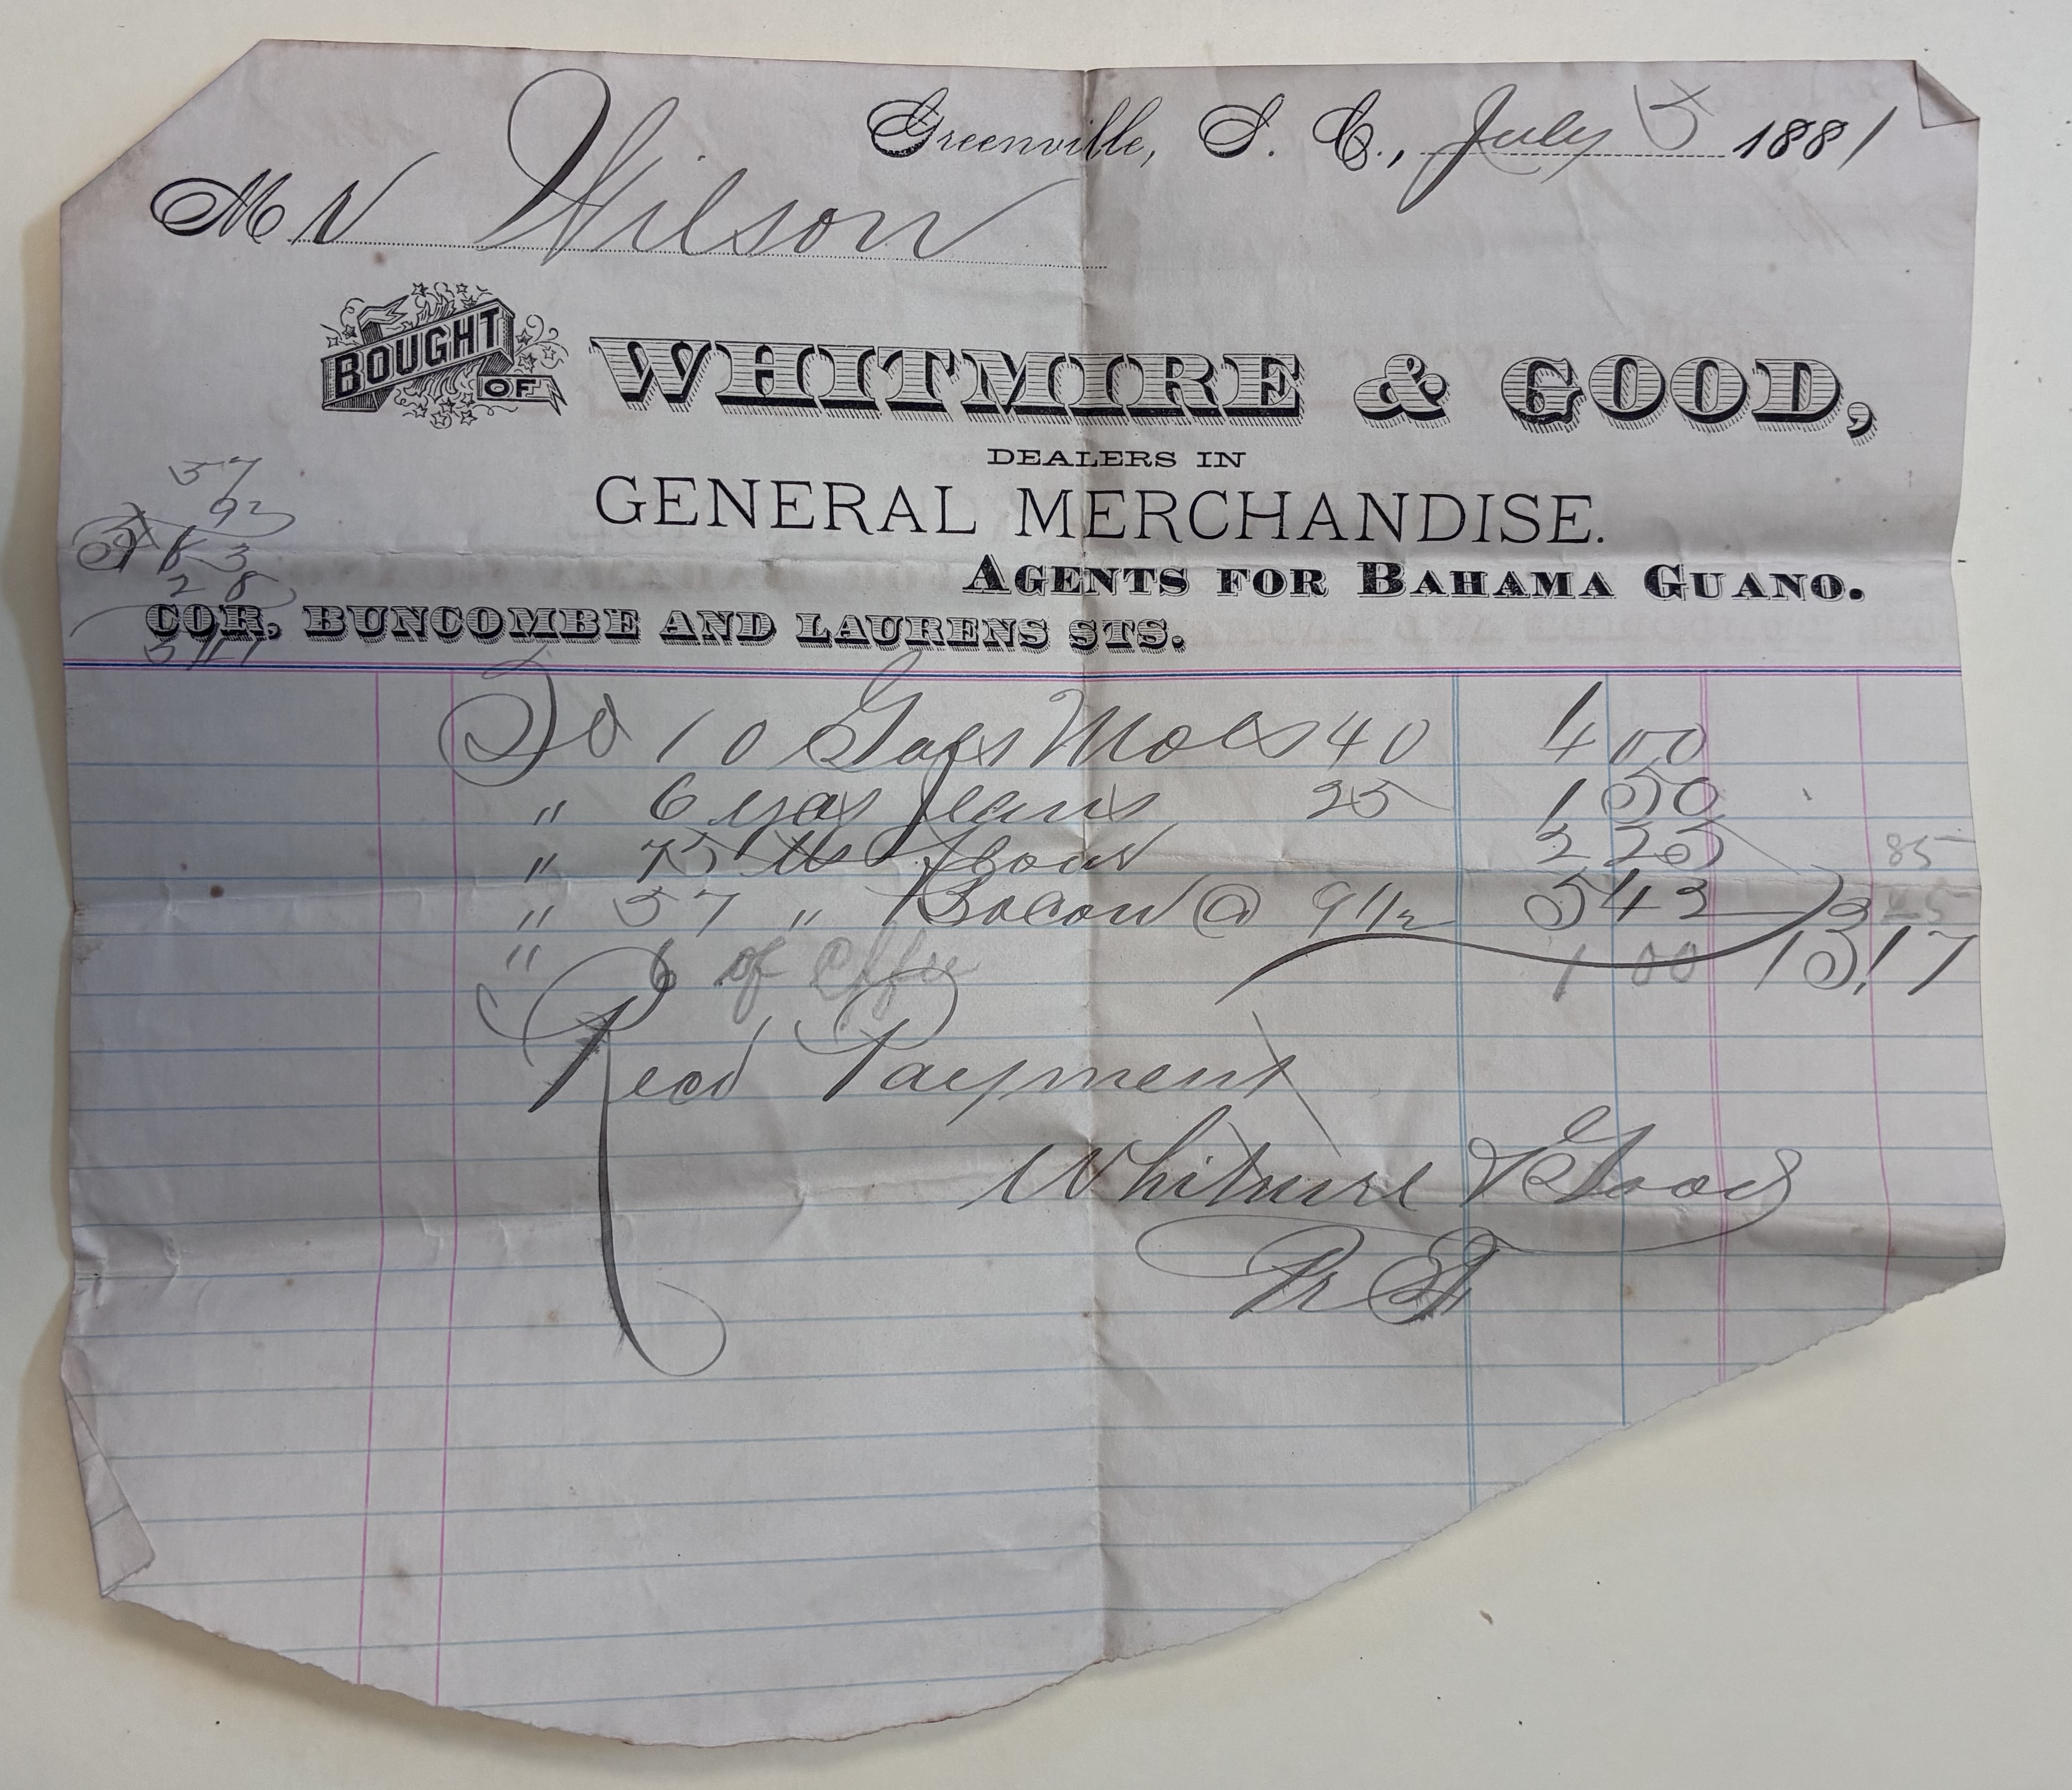 Greenville, S. C., July 5 1881
Mr Wilson
BOUGHT OF WHITMIRE & GOOD,
DEALERS IN
GENERAL MERCHANDISE.
AGENTS FOR BAHAMA GUANO.
COR. BUNCOMBE AND LAURENS STS.
57
9 2
5 1 3
2 8
To 10 Gals Mols 40 4 00
" 6 yds Jeans 25 1 50
" 75 lbs flour 2 25 85
" 57 " Bacon @ 9 1/2 5 42
" 6 of Coffee 1 00 13,17
Recd Payment
Whitmire & Good
Pr